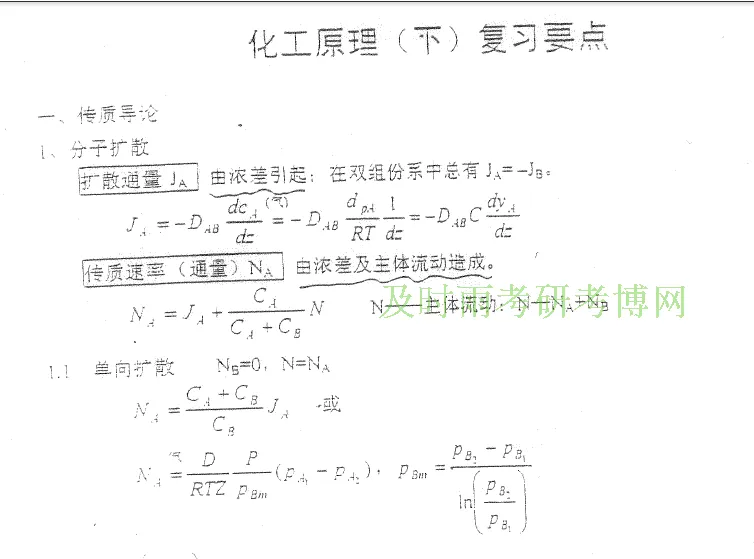 化工原理（下）复习要点
一、传质导论
1、分子扩散
扩散通量 J_A 由浓差引起；在双组份系中总有 J_A=-J_B。
J_A = -D_AB dc_A/dz (气)= -D_AB d_pA/RT 1/dz = -D_AB C dy_A/dz
传质速率（通量）N_A 由浓差及主体流动造成。
N_A = J_A + C_A/(C_A + C_B) N N——主体流动：N=N_A+N_B
及时雨考研考博网
1.1 单向扩散 N_B=0，N=N_A
N_A = (C_A + C_B)/C_B J_A 或
N_A 气= D/RTZ P/p_Bm (p_A1 - p_A2)， p_Bm = (p_B2 - p_B1)/ln(p_B2/p_B1)